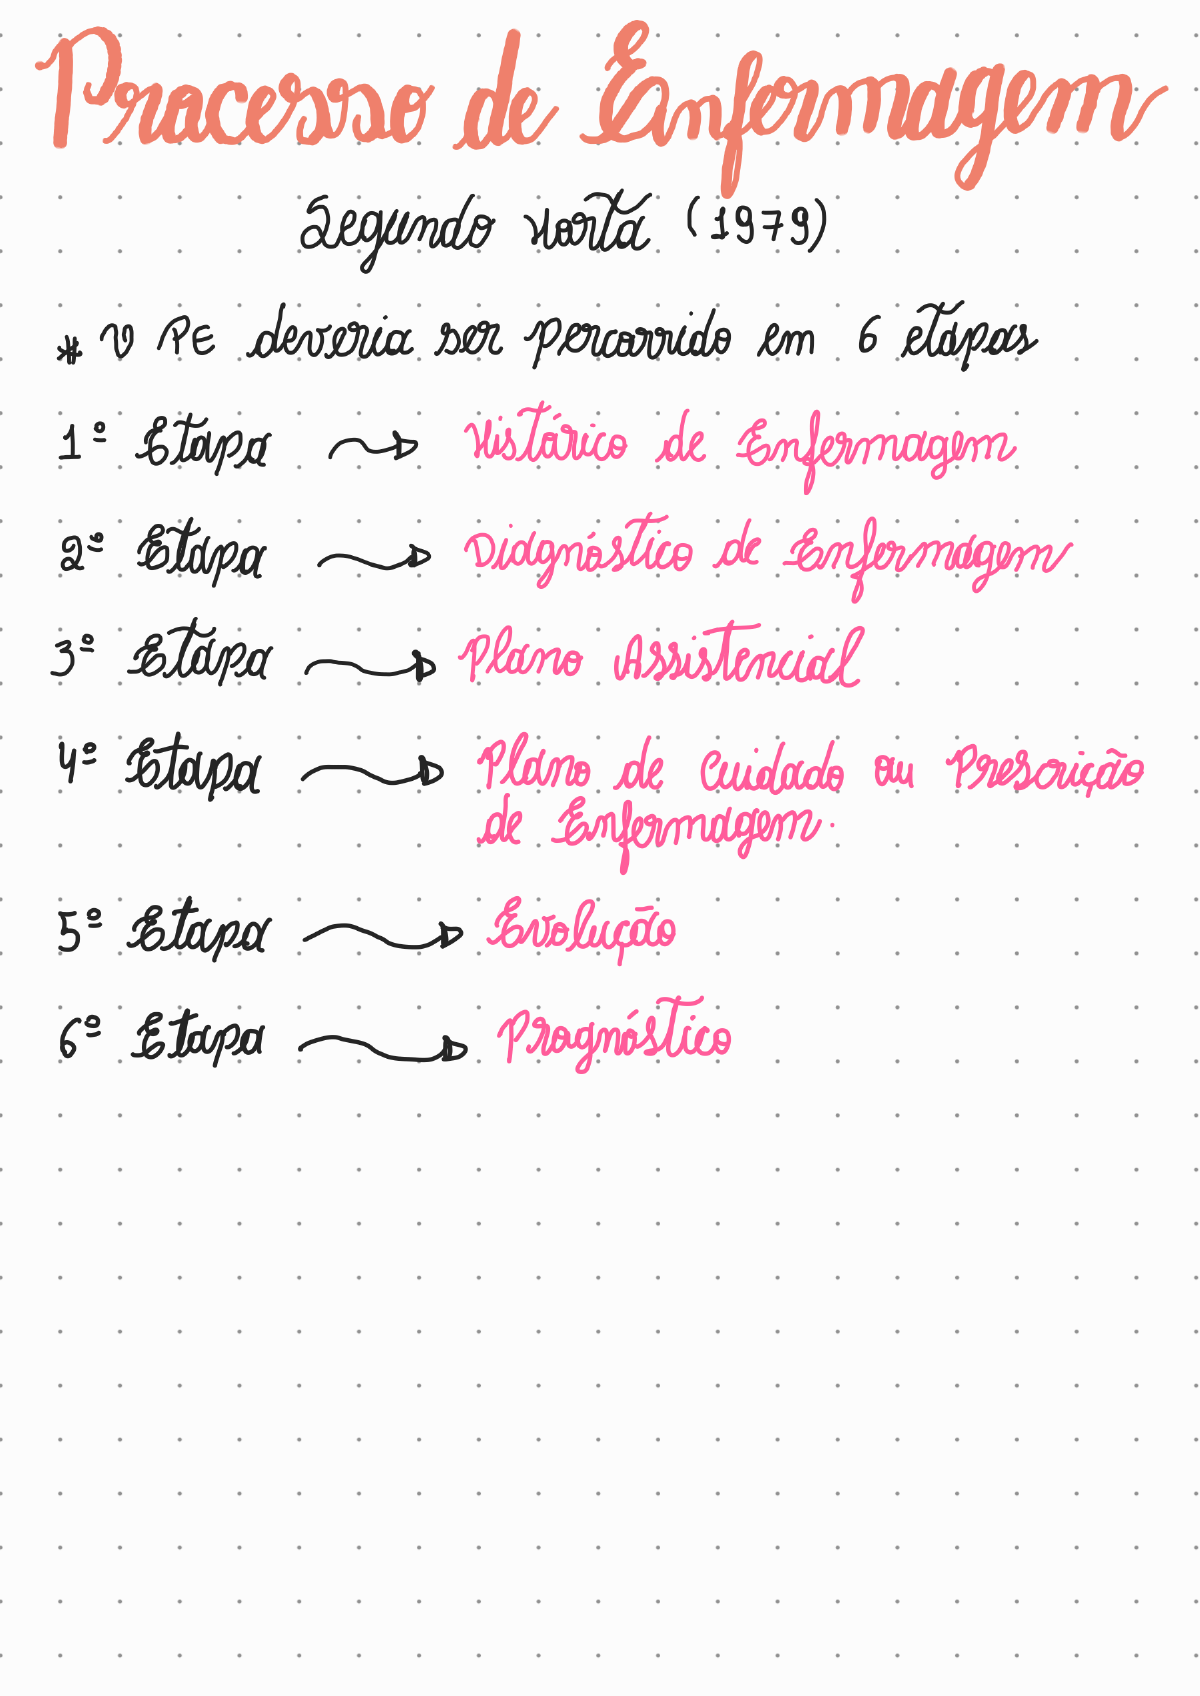 Processo de Enfermagem
Segundo Horta (1979)
* O PE deveria ser percorrido em 6 etapas
1º Etapa → Histórico de Enfermagem
2º Etapa → Diagnóstico de Enfermagem
3º Etapa → Plano Assistencial
4º Etapa → Plano de Cuidado ou Prescrição
de Enfermagem.
5º Etapa → Evolução
6º Etapa → Prognóstico